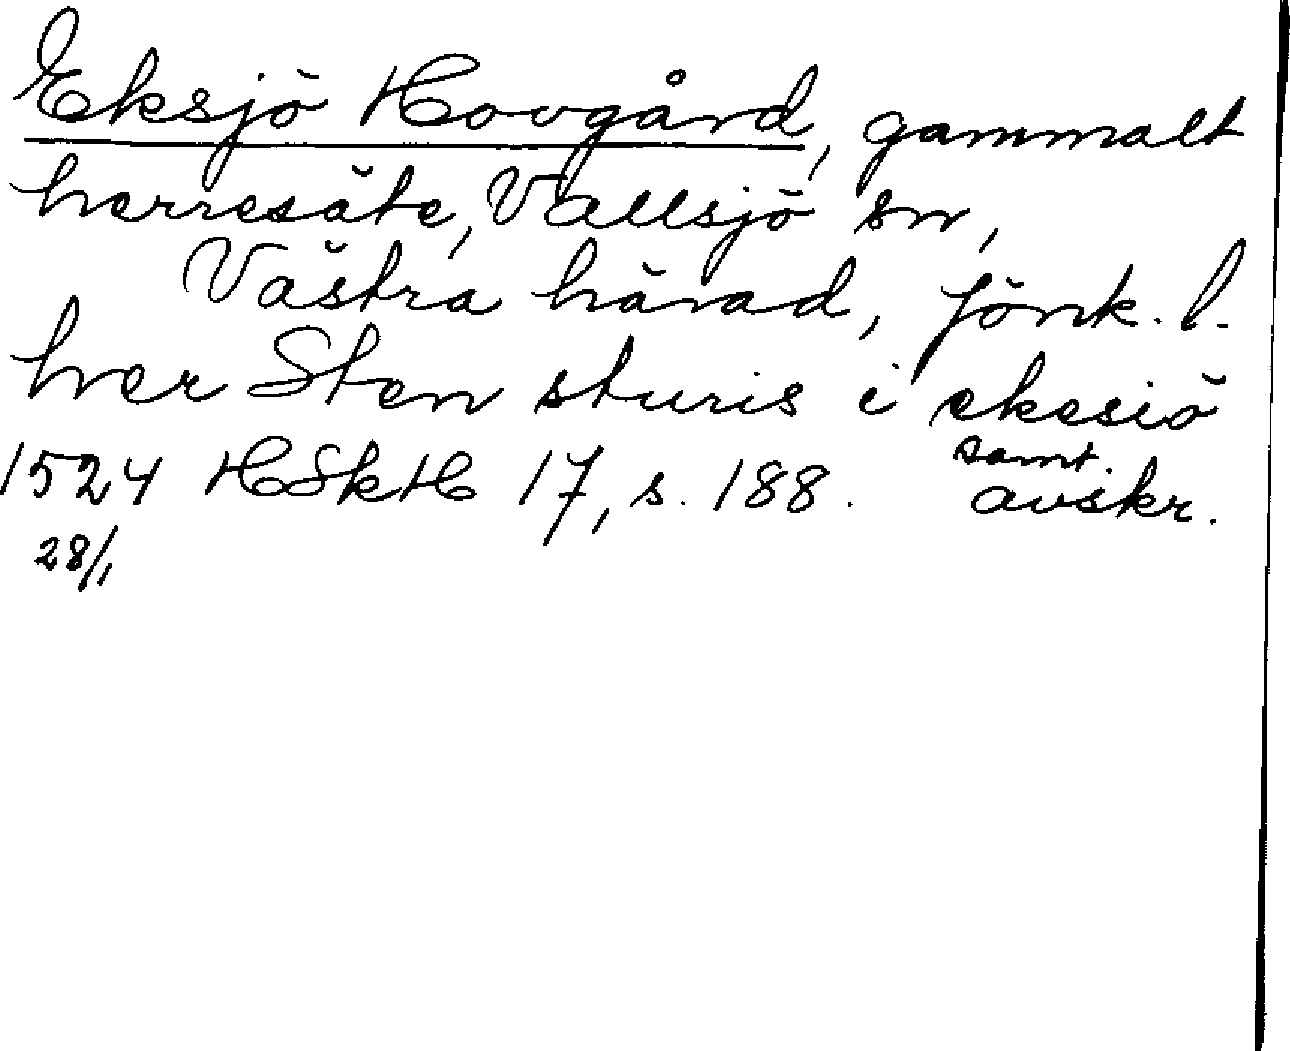 Eksjö Hovgård, gammalt
herresäte, Vallsjö sn,
Västra härad, Jönk. l.
her Sten sturis i ekesiö
1524 HSkH 17, s. 188. samt. avskr.
28/1